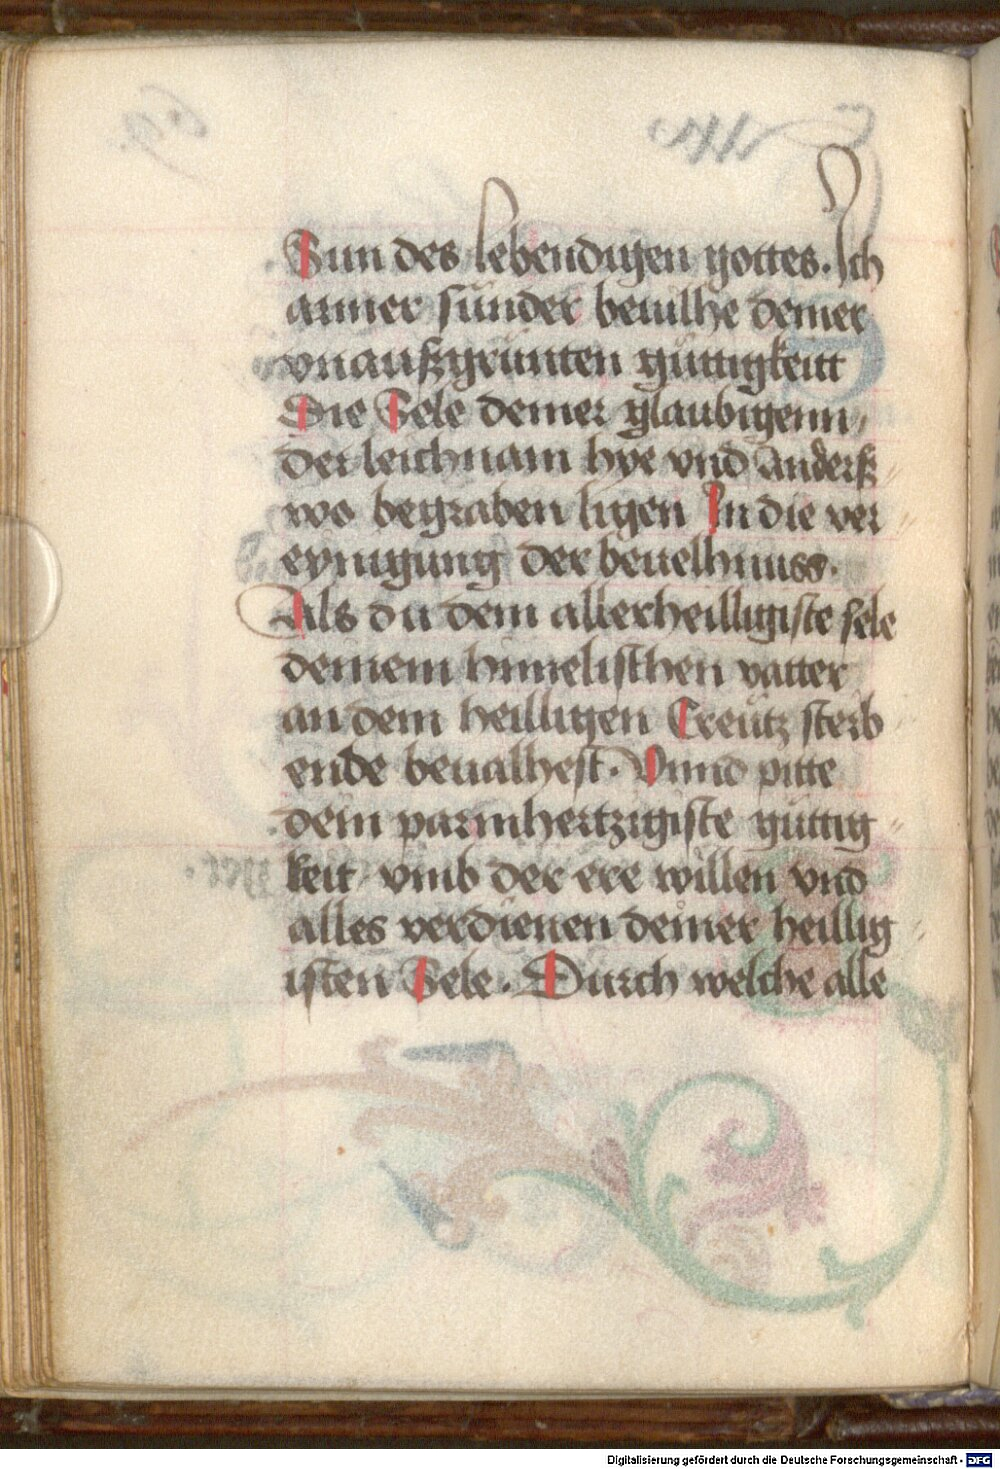 Sun des lebendigen gottes. Ich
armer sünder beuilhe deiner
vnaußgrünten güttigkeitt
Die Sele deiner glaubigenn,
der leichnam hye vnd anderß
wo begraben ligen In die ver
eynigung der beuelhnuss.
Als du dein allerheilligiste sele
deinem himelischen vatter
an dem heilligen Creütz sterb
ende beualhest. Vnnd pitte
dein parmhertzigiste güttig
keit vmb der ere willen vnd
alles verdienen deiner heillig
isten Sele. Durch welche alle
Digitalisierung gefördert durch die Deutsche Forschungsgemeinschaft - DFG